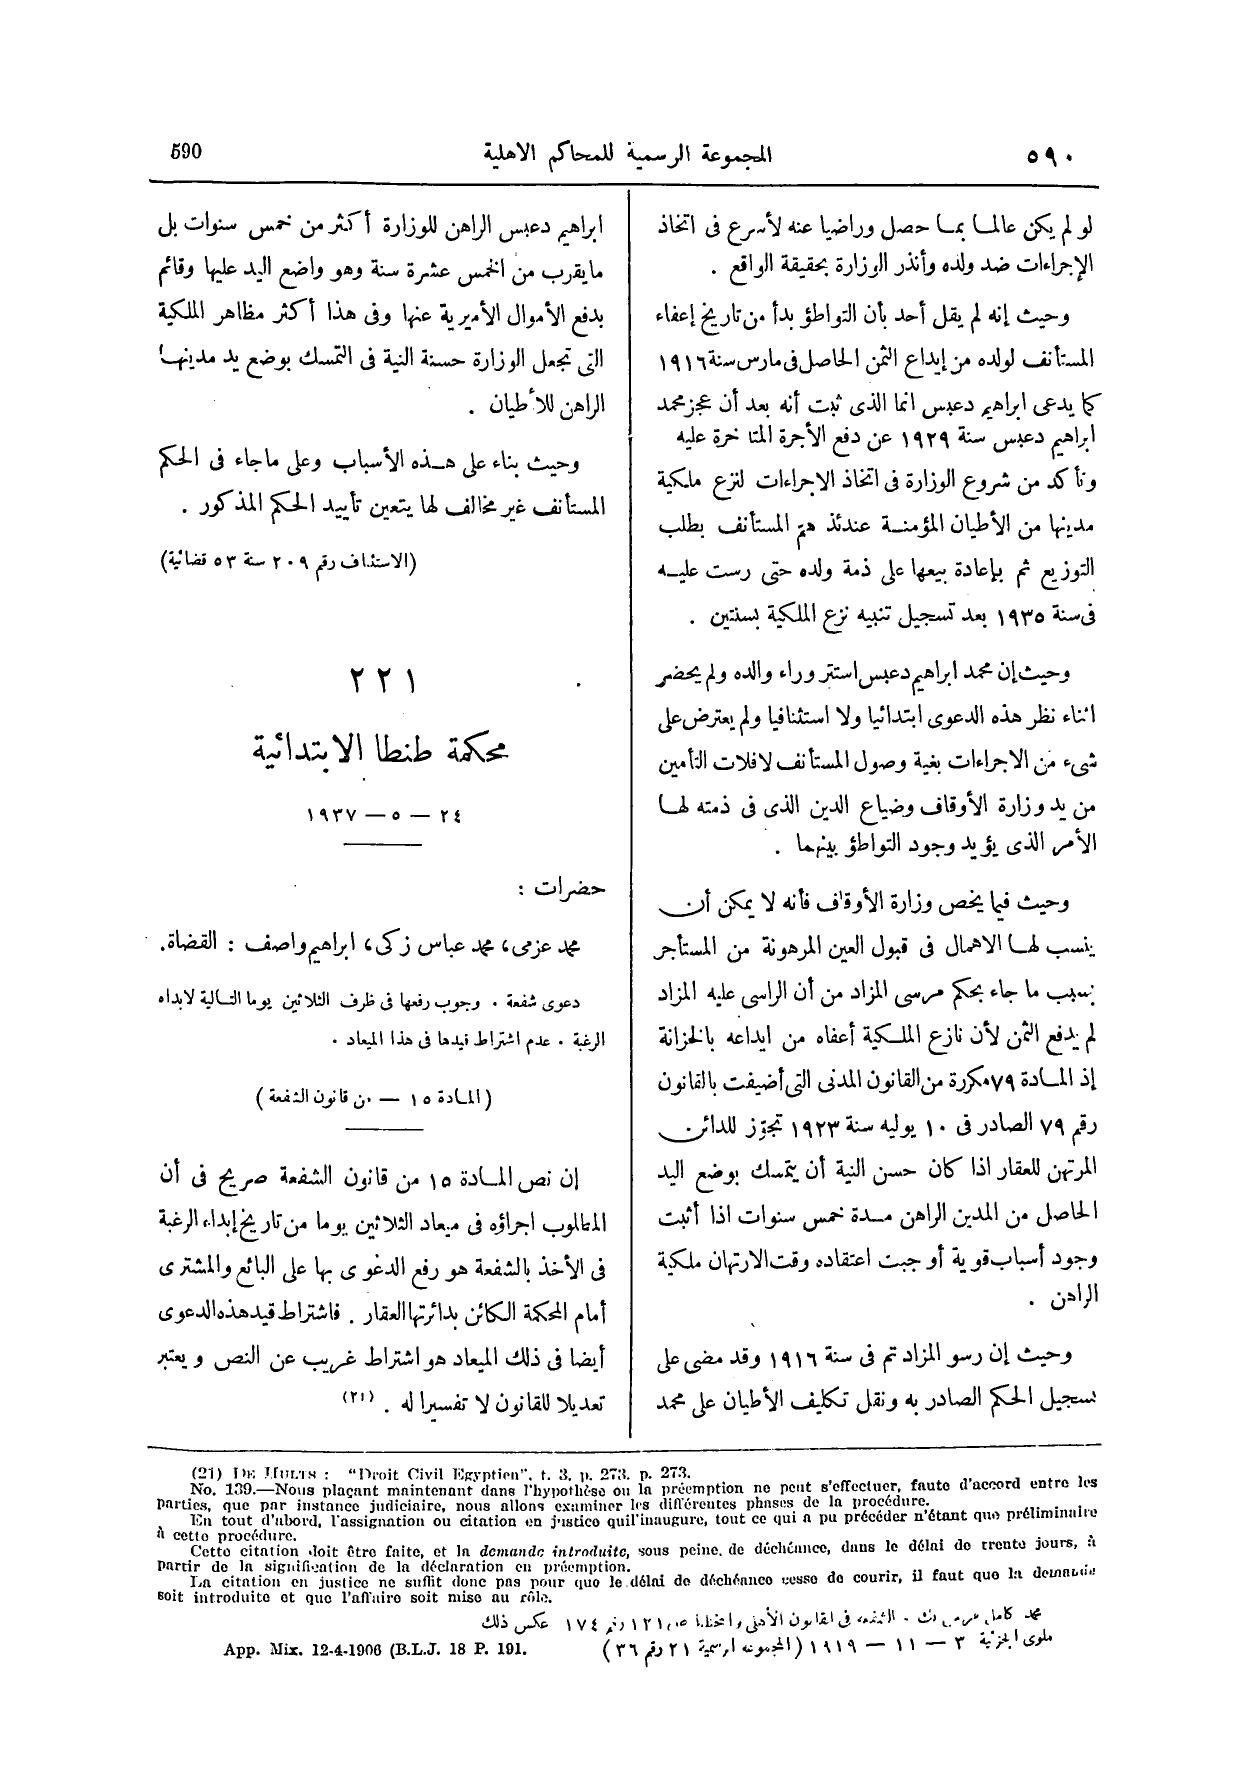 590
المجموعة الرسمية للمحاكم الاهلية
٥٩٠
لو لم يكن عالما بما حصل وراضيا عنه لأسرع فى اتخاذ
الإجراءات ضد ولده وأنذر الوزارة بحقيقة الواقع .
وحيث إنه لم يقل أحد بأن التواطؤ بدأ من تاريخ إعفاء
المستأنف لولده من إيداع الثمن الحاصل فى مارس سنة ١٩١٦
كما يدعى ابراهيم دعبس انما الذى ثبت أنه بعد أن عجز محمد
ابراهيم دعبس سنة ١٩٢٩ عن دفع الأجرة المتأخرة عليه
وتأكد من شروع الوزارة فى اتخاذ الاجراءات لنزع ملكية
مدينها من الأطيان المؤمنة عندئذ هم المستأنف بطلب
التوزيع ثم بإعادة بيعها على ذمة ولده حتى رست عليه
فى سنة ١٩٣٥ بعد تسجيل تنبيه نزع الملكية بسنتين .
وحيث إن محمد ابراهيم دعبس استتر وراء والده ولم يحضر
اثناء نظر هذه الدعوى ابتدائيا ولا استئنافيا ولم يعترض على
شىء من الاجراءات بغية وصول المستأنف لافلات التأمين
من يد وزارة الأوقاف وضياع الدين الذى فى ذمته لها
الأمر الذى يؤيد وجود التواطؤ بينهما .
وحيث فيما يخص وزارة الأوقاف فأنه لا يمكن أن
ينسب لها الاهمال فى قبول العين المرهونة من المستأجر
بسبب ما جاء بحكم مرسى المزاد من أن الراسى عليه المزاد
لم يدفع الثمن لأن نازع الملكية أعفاه من ايداعه بالخزانة
إذ المادة ٧٩ مكررة من القانون المدنى التى أضيفت بالقانون
رقم ٧٩ الصادر فى ١٠ يوليه سنة ١٩٢٣ تجوّز للدائن
المرتهن للعقار اذا كان حسن النية أن يتمسك بوضع اليد
الحاصل من المدين الراهن مدة خمس سنوات اذا أثبت
وجود أسباب قوية أوجبت اعتقاده وقت الارتهان ملكية
الراهن .
وحيث إن رسو المزاد تم فى سنة ١٩١٦ وقد مضى على
تسجيل الحكم الصادر به ونقل تكليف الأطيان على محمد
ابراهيم دعبس الراهن للوزارة أكثر من خمس سنوات بل
ما يقرب من الخمس عشرة سنة وهو واضع اليد عليها وقائم
بدفع الأموال الأميرية عنها وفى هذا أكثر مظاهر الملكية
التى تجعل الوزارة حسنة النية فى التمسك بوضع يد مدينها
الراهن للأطيان .
وحيث بناء على هذه الأسباب وعلى ماجاء فى الحكم
المستأنف غير مخالف لها يتعين تأييد الحكم المذكور .
(الاستئناف رقم ٢٠٩ سنة ٥٣ قضائية)
٢٢١
محكمة طنطا الابتدائية
٢٤ — ٥ — ١٩٣٧
حضرات :
محمد عزمى، محمد عباس زكى، ابراهيم واصف : القضاة.
دعوى شفعة . وجوب رفعها فى ظرف الثلاثين يوما التالية لابداء
الرغبة . عدم اشتراط قيدها فى هذا الميعاد .
(المادة ١٥ — من قانون الشفعة)
إن نص المادة ١٥ من قانون الشفعة صريح فى أن
المطلوب اجراؤه فى ميعاد الثلاثين يوما من تاريخ إبداء الرغبة
فى الأخذ بالشفعة هو رفع الدعوى بها على البائع والمشترى
أمام المحكمة الكائن بدائرتها العقار . فاشتراط قيد هذه الدعوى
أيضا فى ذلك الميعاد هو اشتراط غريب عن النص ويعتبر
تعديلا للقانون لا تفسيرا له . (٢١)
(21) DE HULTS : "Droit Civil Egyptien", t. 3, p. 273. p. 273.
No. 139.—Nous plaçant maintenant dans l'hypothèse ou la préemption ne peut s'effectuer, faute d'accord entre les
parties, que par instance judiciaire, nous allons examiner les différentes phases de la procédure.
En tout d'abord, l'assignation ou citation en justice quil'inaugure, tout ce qui a pu précéder n'étant que préliminaire
à cette procédure.
Cette citation doit être faite, et la demande introduite, sous peine. de déchéance, dans le délai de trente jours, à
partir de la signification de la déclaration en préemption.
La citation en justice ne suffit donc pas pour que le délai de déchéance cesse de courir, il faut que la demande
soit introduite et que l'affaire soit mise au rôle.
محمد كامل مرسى بك . الشفعة فى القانون الأهلى والمختلط ص ١٢١ رقم ١٧٤ عكس ذلك
ملوى الجزئية ٣ — ١١ — ١٩١٩ (المجموعة الرسمية ٢١ رقم ٣٦)
App. Mix. 12-4-1906 (B.L.J. 18 P. 191.